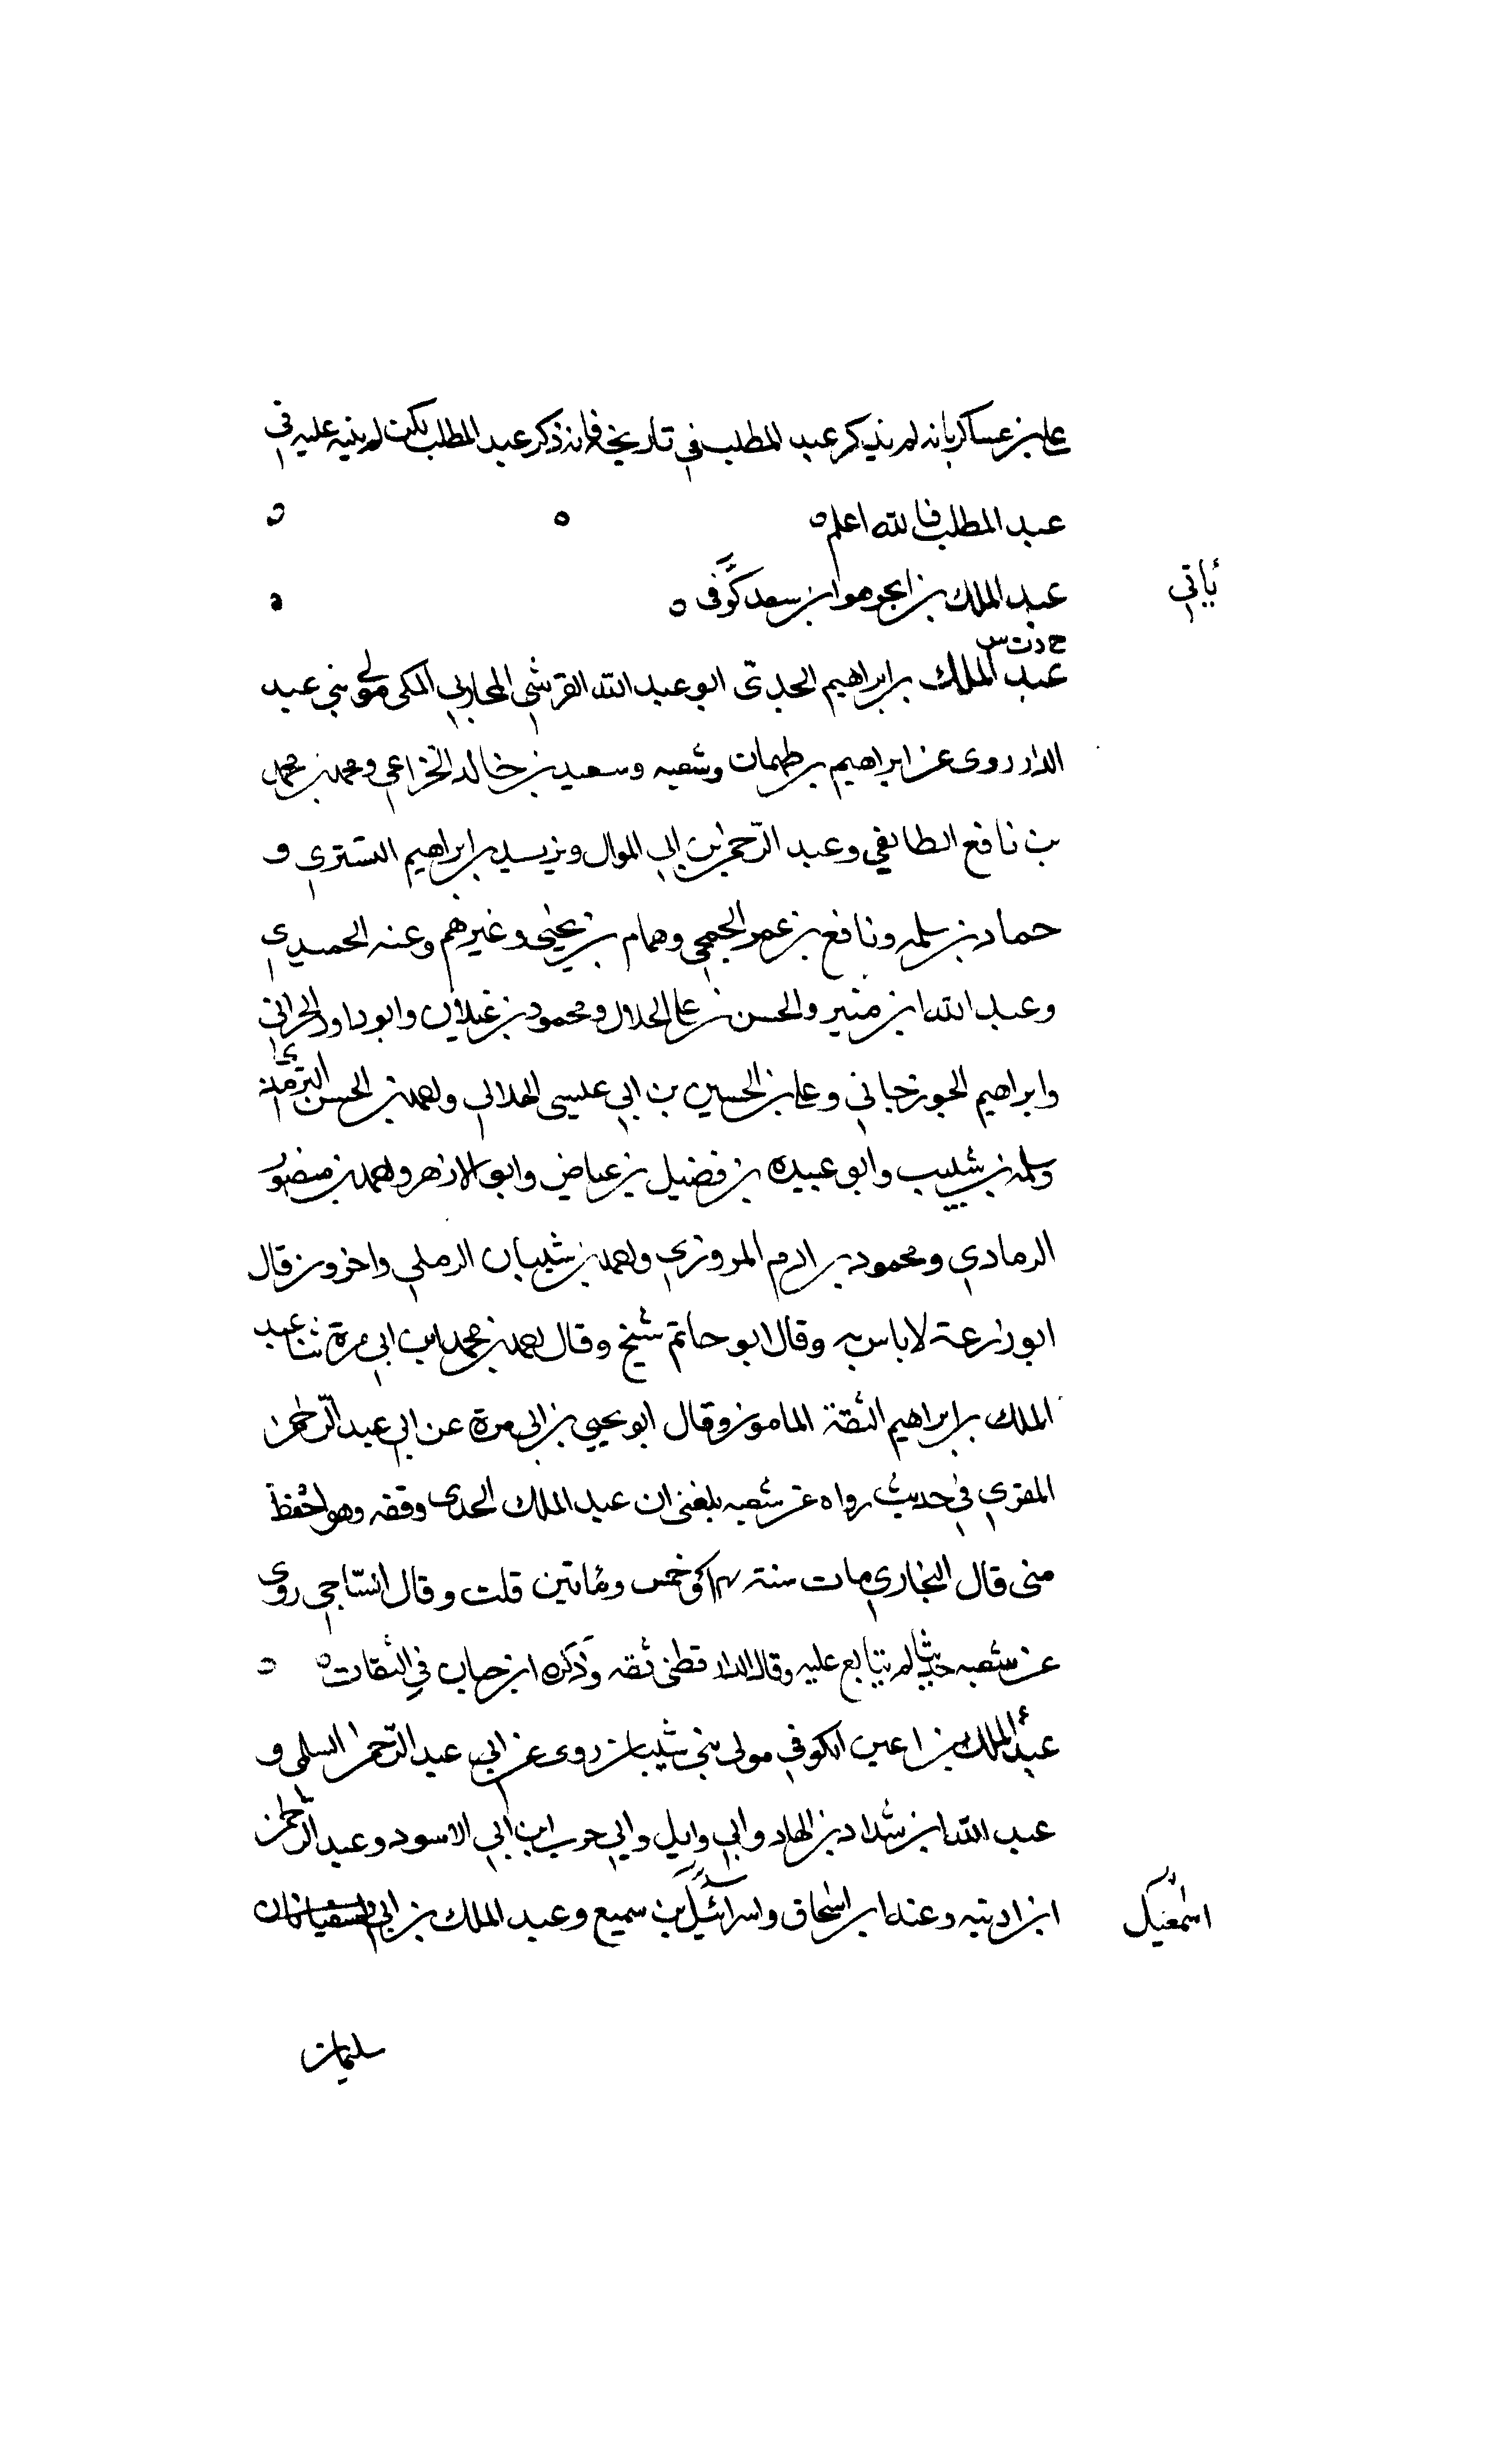 علي بن عساكر بانه لم يذكر عبد المطلب في تاريخه فانه ذكر عبد المطلب لكن لم ينبه عليه في
عبد المطلب فالله اعلم ه
عبد الملك بن ابجر هو ابن سعد كوفى ه
ياتي
خ د ت س
عبد الملك بن ابراهيم الجدى ابو عبد الله القرشي الحجازي المكى مولى بني عبد
الدار روى عن ابراهيم بن طهمان وشعبه وسعيد بن خالد الخزاعي ومحمد بن محمد
بن نافع الطايفي وعبد الرحمن بن ابي الموال ويزيد بن ابراهيم التستري و
حماد بن سلمه ونافع بن عمر الجمحي وهمام بن يحيى وغيرهم وعنه الحميدي
وعبد الله ابن منير والحسن بن علي الحلال ومحمود بن غيلان وابو داود الحراني
وابراهيم الجوزجاني وعلي بن الحسين بن ابي عيسى الهلالي واحمد بن الحسن الترمذى
وسلمه بن شبيب وابو عبيده بن فضيل بن عياض وابو الازهر واحمد بن منصور
الرمادي ومحمود بن ادم المروزي واحمد بن شيبان الرملي واخرون قال
ابو زرعة لا باس به وقال ابو حاتم شيخ وقال احمد بن محمد ابن ابي مرة ثنا عبد
الملك بن ابراهيم الثقة المامون وقال ابو يحيى بن ابي مرة عن ابي عبد الرحمن
المقري في حديث رواه عن شعبه بلغني ان عبد الملك الجدى وقفه وهو احفظ
منى قال البخاري مات سنة ٤ او خمس ومأتين قلت وقال الساجي روى
عن شعبه حديثا لم يتابع عليه وقال الدارقطنى ثقه وذكره ابن حبان في الثقات ه
عبد الملك بن اعين الكوفي مولى بني شيبان روى عن ابي عبد الرحمن السلمي و
عبد الله ابن شداد بن الهاد وابي وايل وابي حرب ابن ابي الاسود وعبد الرحمن
ابن اذينه وعنه ابن اسحاق واسرائيل بن سميع وعبد الملك بن ابي
اسمعيل
سليمان